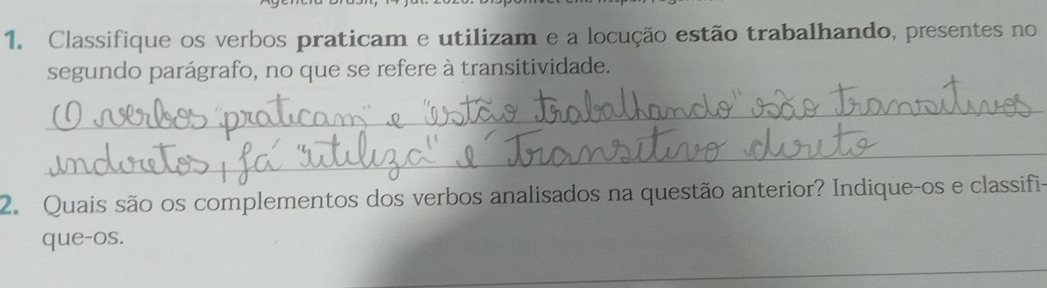 1. Classifique os verbos praticam e utilizam e a locução estão trabalhando, presentes no
segundo parágrafo, no que se refere à transitividade.
O verbos "praticam" e "estão trabalhando" são transitivos
indiretos, já "utiliza" é transitivo direto
2. Quais são os complementos dos verbos analisados na questão anterior? Indique-os e classifi-
que-os.